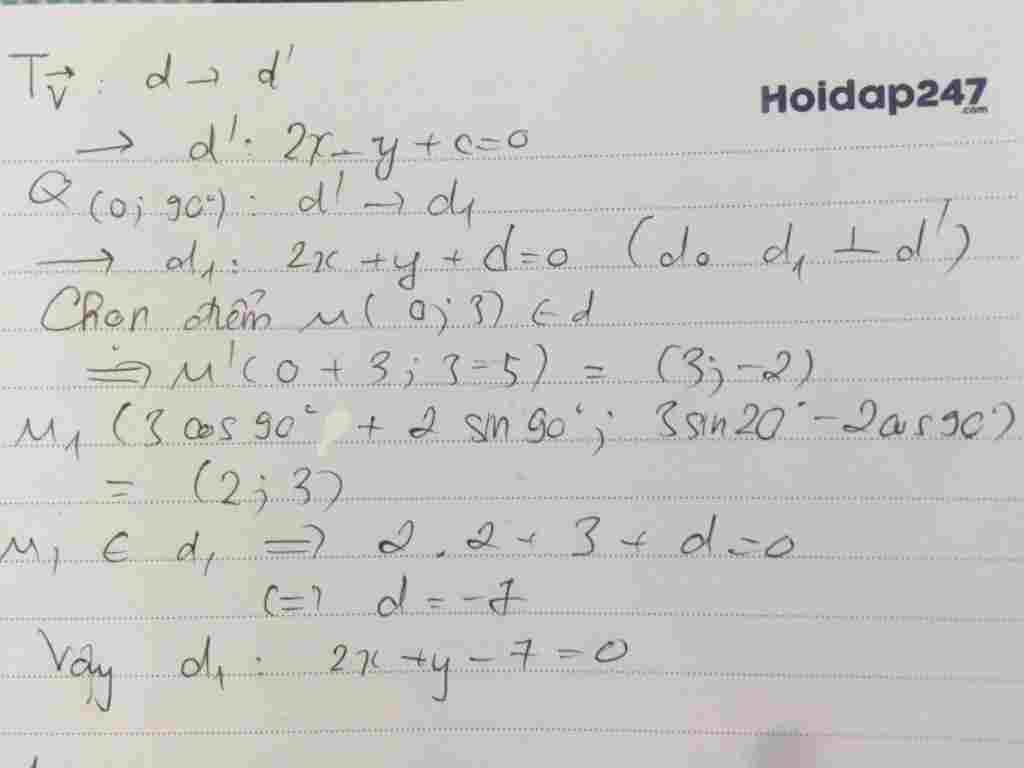 T_v⃗ : d → d'
Hoidap247
.com
→ d': 2x - y + c = 0
Q(0; 90°) : d' → d₁
→ d₁: 2x + y + d = 0 (do d₁ ⊥ d')
Chọn điểm M(0; 3) ∈ d
⇒ M'(0 + 3; 3 - 5) = (3; -2)
M₁ (3 cos 90° + 2 sin 90°; 3 sin 20° - 2 cos 90°)
= (2; 3)
M₁ ∈ d₁ ⇒ 2.2 + 3 + d = 0
(=) d = -7
Vậy d₁: 2x + y - 7 = 0